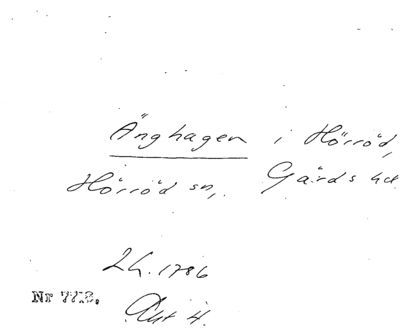 Änghagen i Hörröd,
Hörröd sn, Gärds hd
Lh. 1786
Nr 772. Akt 4.